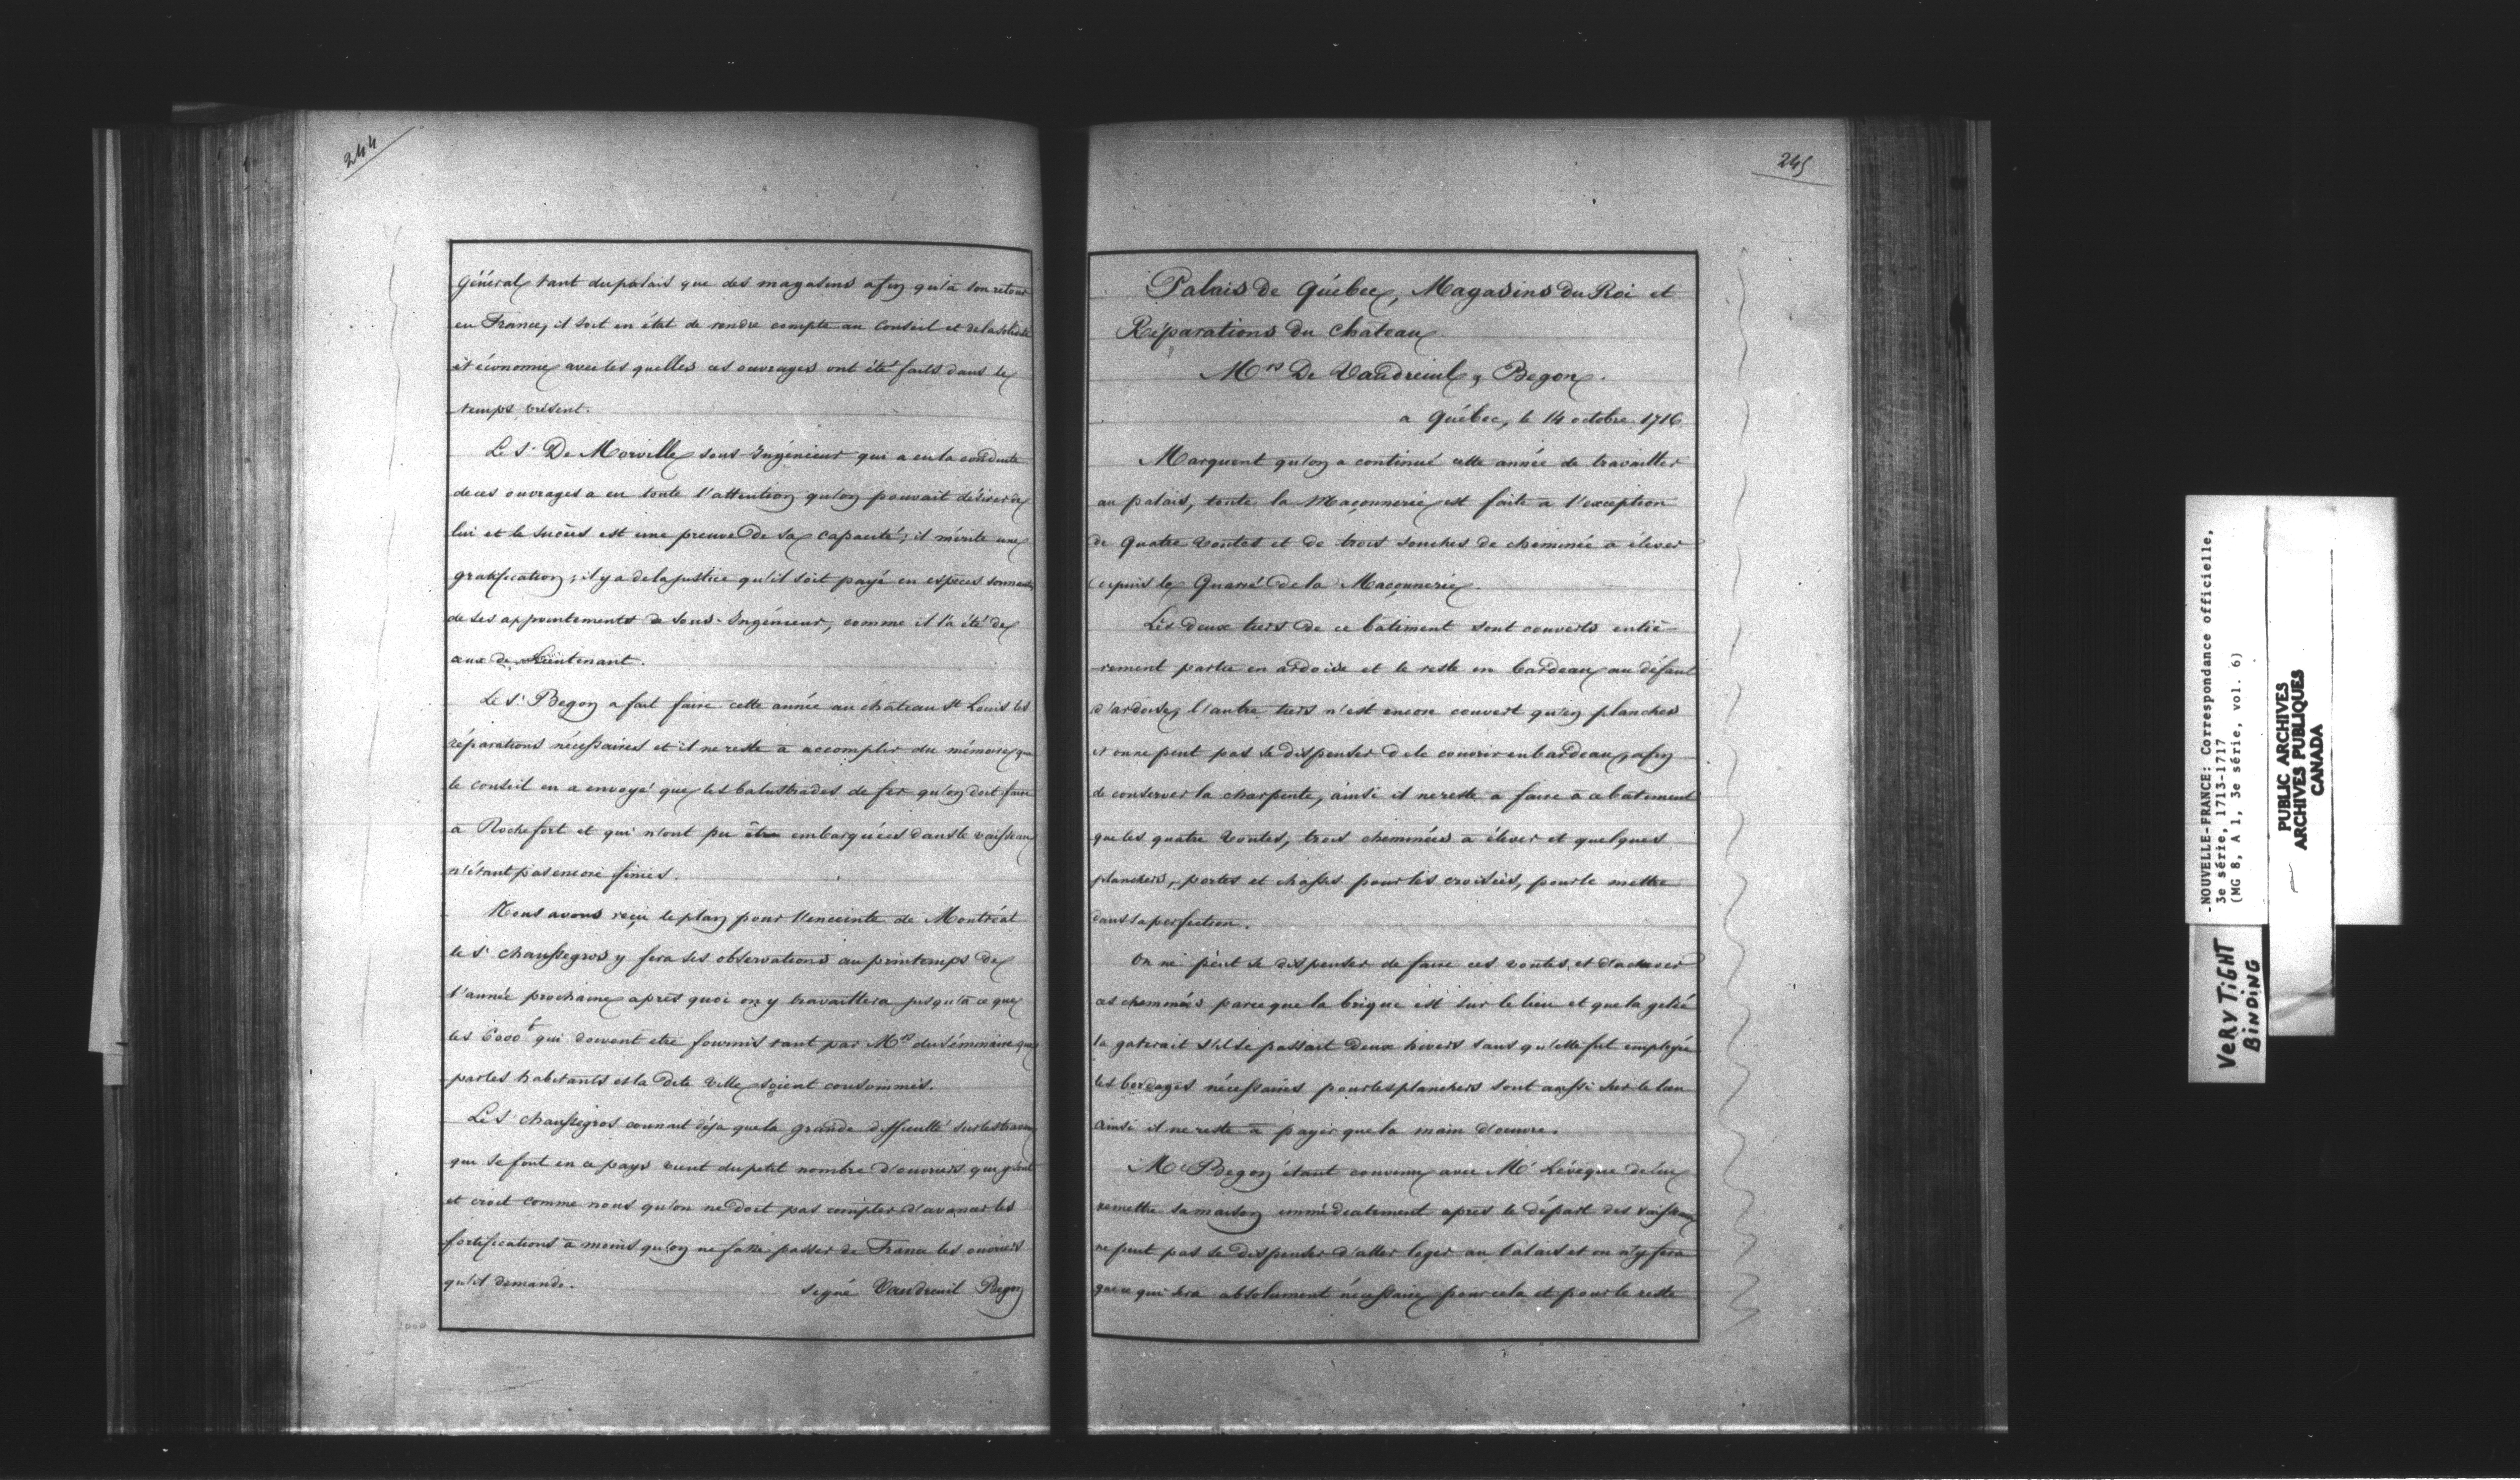 244
Général tant du palais que des magasins afin qu'à son retour
en France, il soit en état de rendre compte au Conseil et de la solidité
et économie avec les quelles ces ouvrages ont été faits dans le
temps présent.
Le Sr De Morville sous-Ingénieur qui a eu la conduite
de ces ouvrages a eu toute l'attention qu'on pouvait désirer de
lui et le succès est une preuve de sa capacité; il mérite une
gratification; il y a de la justice qu'il soit payé en espèces sonnantes
de ses appointements de sous-Ingénieur, comme il l'a été de
ceux de Lieutenant.
Le Sr Begon a fait faire cette année au chateau St Louis les
réparations nécessaires et il ne reste a accomplir du mémoire que
le conseil en a envoyé que les balustrades de fer qu'on doit faire
à Rochefort et qui n'ont pu être embarquées dans le vaisseau
n'étant pas encore finies.
Nous avons reçu le plan pour l'enceinte de Montréal
le Sr Chaussegros y fera ses observations au printemps de
l'année prochaine après quoi on y travaillera jusqu'à ce que
les 6000 t qui doivent etre fournis tant par Mrs du Séminaire que
par les habitants de la dite ville soient consommés.
Le Sr Chaussegros connait déja que la grande difficulté sur les travaux
qui se font en ce pays vient du petit nombre d'ouvriers qui y sont
et croit comme nous qu'on ne doit pas compter d'avancer les
fortifications à moins qu'on ne fasse passer de France les ouvriers
qu'il demande.
signé Vaudreuil Begon
245
Palais de Québec, Magasins du Roi et
Réparations du Chateau
Mrs De Vaudreuil & Begon.
a Québec, le 14 octobre 1716
Marquent qu'on a continué cette année de travailler
au palais, toute la Maçonnerie est faite a l'exception
de Quatre Voutes et de trois souches de cheminée a élever
depuis le Quarré de la Maçonnerie.
Les deux tiers de ce batiment sont couverts entiè-
rement partie en ardoise et le reste en bardeau au défaut
d'ardoise, l'autre tiers n'est encore couvert qu'en planches
et on ne peut pas se dispenser de le couvrir en bardeau, afin
de conserver la charpente, ainsi il ne reste a faire à ce batiment
que les quatre Voutes, trois cheminées a élever et quelques
planchers, portes et chassis pour les croisées, pour le mettre
dans sa perfection.
On ne peut se dispenser de faire ces voutes et d'achever
ces cheminées parce que la brique est sur le lieu et que la gelée
la gaterait s'il se passait deux hivers sans qu'elle fut employée
les bordages nécessaires pour les planchers sont aussi sur le lieu
ainsi il ne reste à payer que la main d'œuvre.
Mr Begon étant convenu avec Mr Lévêque de lui
remettre sa maison immédiatement après le départ des vaisseaux
ne peut pas se dispenser d'aller loger au Palais et on n'y fera
que ce qui sera absolument nécessaire pour cela et pour le reste
-NOUVELLE-FRANCE: Correspondance officielle,
3e série, 1713-1717
(MG 8, A 1, 3e série, vol. 6)
PUBLIC ARCHIVES
ARCHIVES PUBLIQUES
CANADA
VERY TIGHT
BINDING